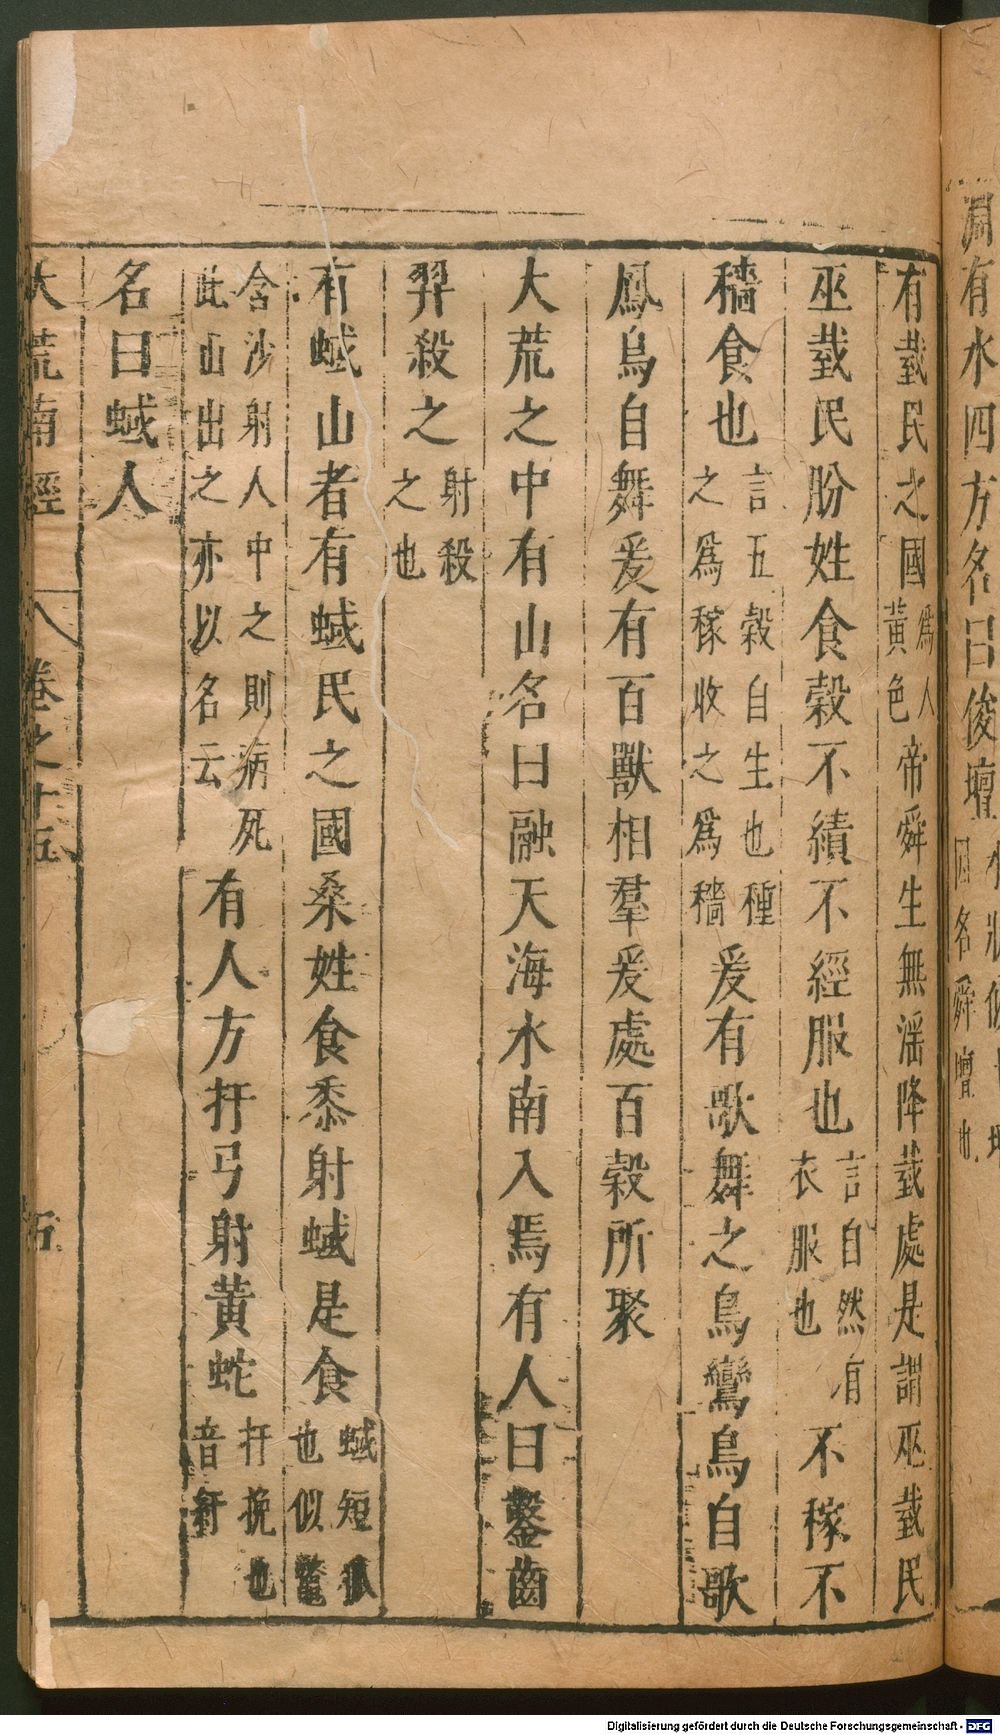 淵有水四方名曰俊壇
名舜壇也
有臷民之國爲人黃色帝舜生無淫降臷處是謂巫臷民
巫臷民肦姓食穀不績不經服也言自然有衣服也不稼不
穡食也言五穀自生也種之爲稼收之爲穡爰有歌舞之鳥鸞鳥自歌
鳳鳥自舞爰有百獸相羣爰處百穀所聚
大荒之中有山名曰融天海水南入焉有人曰鑿齒
羿殺之射殺之也
有蜮山者有蜮民之國桑姓食黍射蜮是食蜮短狐也似鼈
含沙射人中之則病死此山出之亦以名云有人方扜弓射黃蛇扜挽也音紆
名曰蜮人
大荒南經 卷之十五 五
Digitalisierung gefördert durch die Deutsche Forschungsgemeinschaft - DFG